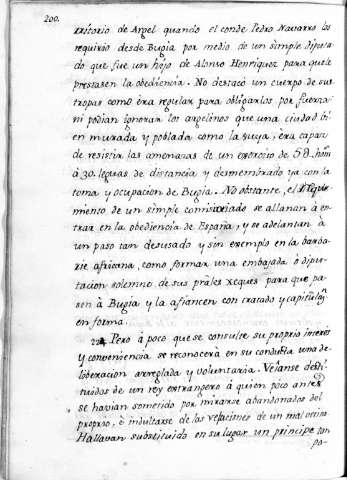 200.
rritorio de Argel quando el conde Pedro Navarro los
requirio desde Bugia por medio de un simple diputa-
do que fue un hijo de Alonso Henriquez para que le
prestasen la obediencia. No destacó un cuerpo de sus
tropas como era regular para obligarlos por fuerza
ni podian ignorar los argelinos que una ciudad bi-
en murada y poblada como la suya, era capaz
de resistir las amenazas de un exercito de 5 hom
á 30. leguas de distancia y desmembrado ya con la
toma y ocupacion de Bugia. No obstante, el requiri-
miento de un simple comisariado se allanan á en-
trar en la obediencia de España, y se adelantan à
un paso tan desusado y sin exemplo en la barba-
rie africana, como formar una embajada o dipu-
tacion solemne de sus prâles xeques para que pa-
sen à Bugia y la afiancen con tratado y capitulaⁿ
en forma.
22 Pero á poco que se consulte su proprio interes
y conveniencia se reconocerá en su conducta una de-
liberacion arreglada y voluntaria. Veîanse desti-
tuidos de un rey extrangero á quien poco antes
se havian sometido por mirarse abandonados del
proprio, è indultarse de las vejaciones de un mal vecino.
Hallavan substituido en su lugar un principe tan
po-